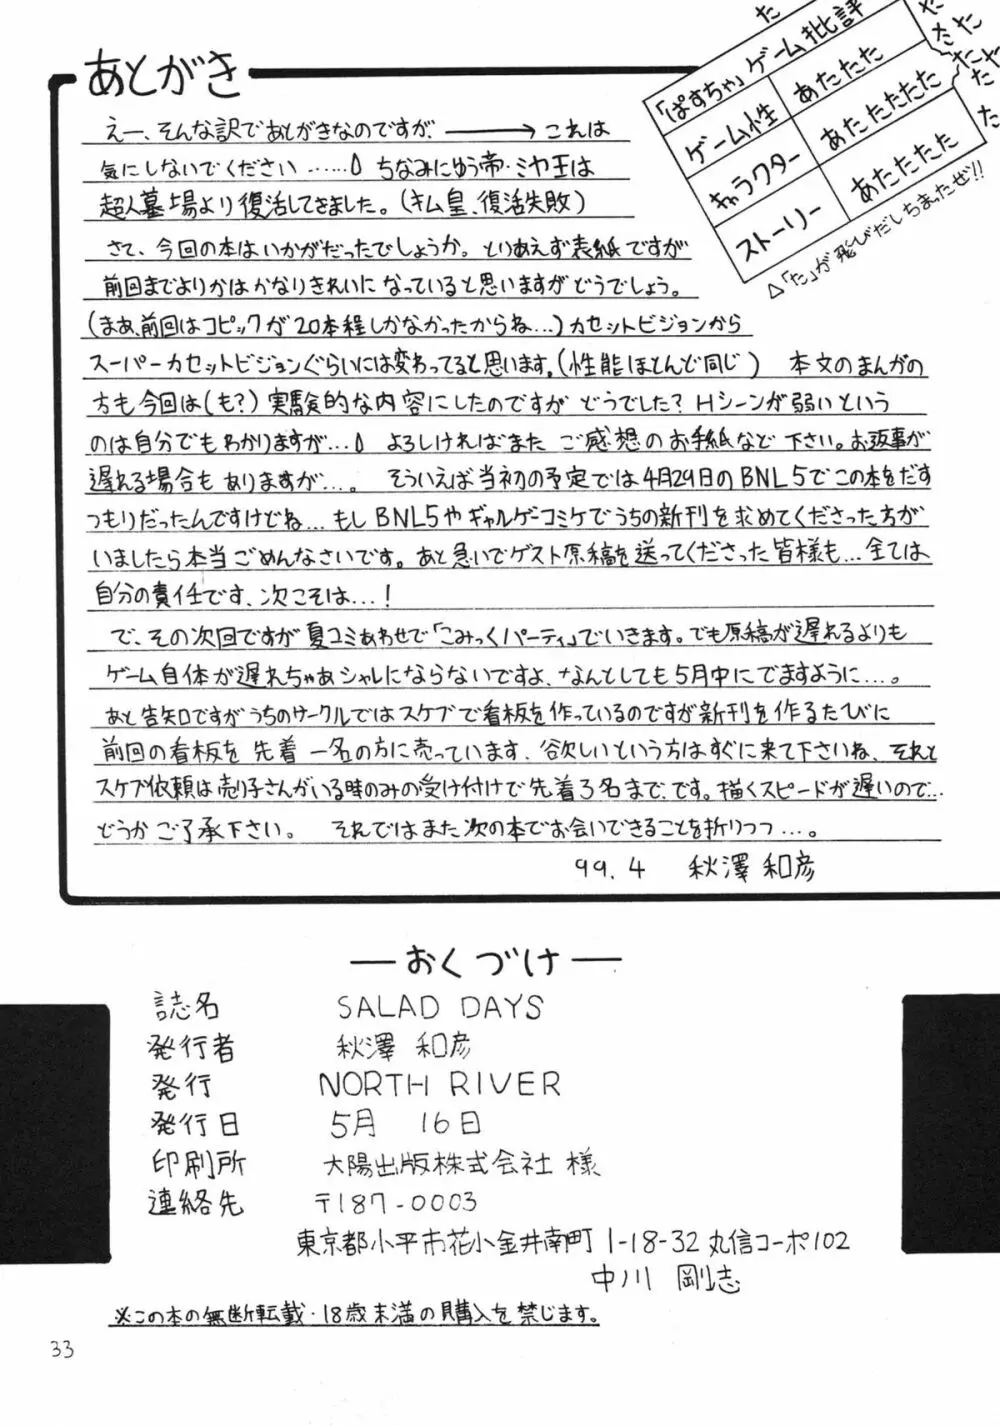 あとがき
「ぱすちゃ」ゲーム批評
ゲーム性 あたたた
キャラクター あたたたたた
ストーリー あたたたた
た
た
た
た
た
た
た
た
た
△「た」が飛びだしちまったぜ!!
えー、そんな訳であとがきなのですが、→これは
気にしないでください……。ちなみにゆう帝・ミヤ王は
超人墓場より復活してきました。(キム皇、復活失敗)
さて、今回の本はいかがだったでしょうか。とりあえず表紙ですが
前回までよりかはかなりきれいになっていると思いますがどうでしょう。
(まあ、前回はコピックが20本程しかなかったからね…)カセットビジョンから
スーパーカセットビジョンぐらいには変わってると思います。(性能ほとんど同じ) 本文のまんがの
方も今回は(も?)実験的な内容にしたのですがどうでした?Hシーンが弱いという
のは自分でもわかりますが…。よろしければまたご感想のお手紙など下さい。お返事が
遅れる場合もありますが…。 そういえば当初の予定では4月29日のBNL5でこの本をだす
つもりだったんですけどね…もしBNL5やギャルゲーコミケでうちの新刊を求めてくださった方が
いましたら本当ごめんなさいです。あと急いでゲスト原稿を送ってくださった皆様も…全ては
自分の責任です、次こそは…!
で、その次回ですが夏コミあわせで「こみっくパーティ」でいきます。でも原稿が遅れるよりも
ゲーム自体が遅れちゃあシャレにならないですよ、なんとしても5月中にでますように…。
あと告知ですがうちのサークルではスケブで看板を作っているのですが新刊を作るたびに
前回の看板を先着一名の方に売っています、欲しいという方はすぐに来て下さいね、それと
スケブ依頼は売り子さんがいる時のみの受け付けで先着3名まで、です。描くスピードが遅いので…
どうかご了承下さい。 それではまた次の本でお会いできることを祈りつつ…。
99.4 秋澤 和彦
―おくづけ―
誌名 SALAD DAYS
発行者 秋澤 和彦
発行 NORTH RIVER
発行日 5月 16日
印刷所 大陽出版株式会社 様
連絡先 〒187-0003
東京都小平市花小金井南町 1-18-32 丸信コーポ102
中川 剛志
※この本の無断転載・18歳未満の購入を禁じます。
33